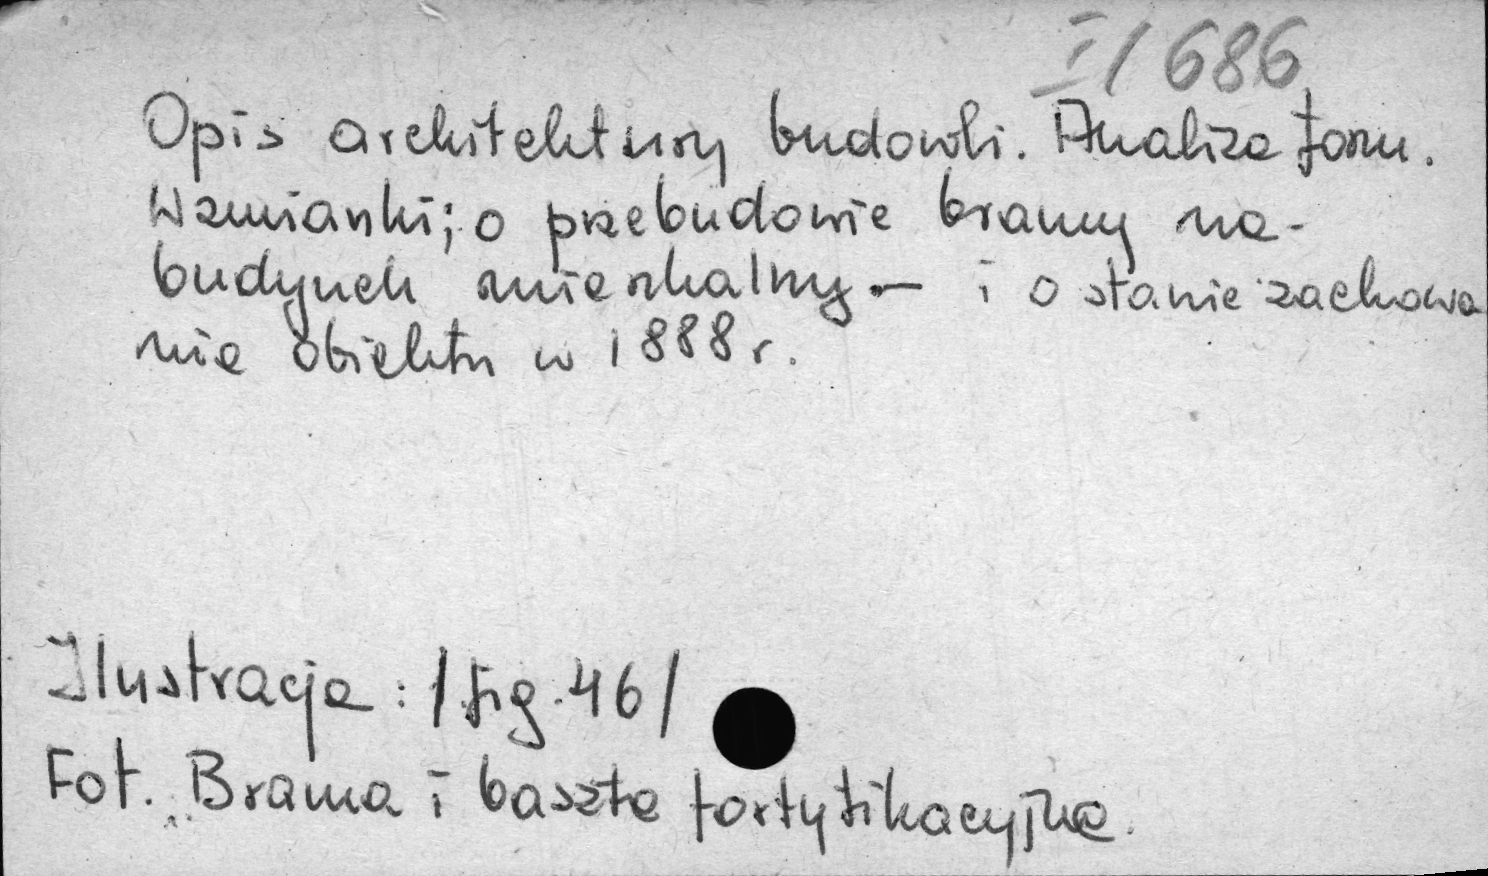 I/686
Opis architektury budowli. Analiza form.
Wzmianki; o przebudowie bramy na-
budynek mieszkalny. — i o stanie zachowa
nia obiektu w 1888 r.
Ilustracja : /fig. 46/
Fot. Brama i baszta fortyfikacyjna.